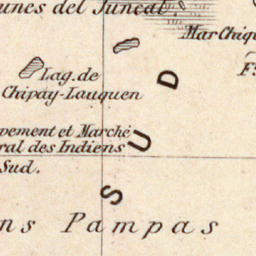 unes del Juncal
Mar Chiqu
F
Lag. de
Chipay-Lauquen
SUD
pement et Marché
ral des Indiens
Sud.
ns Pampas